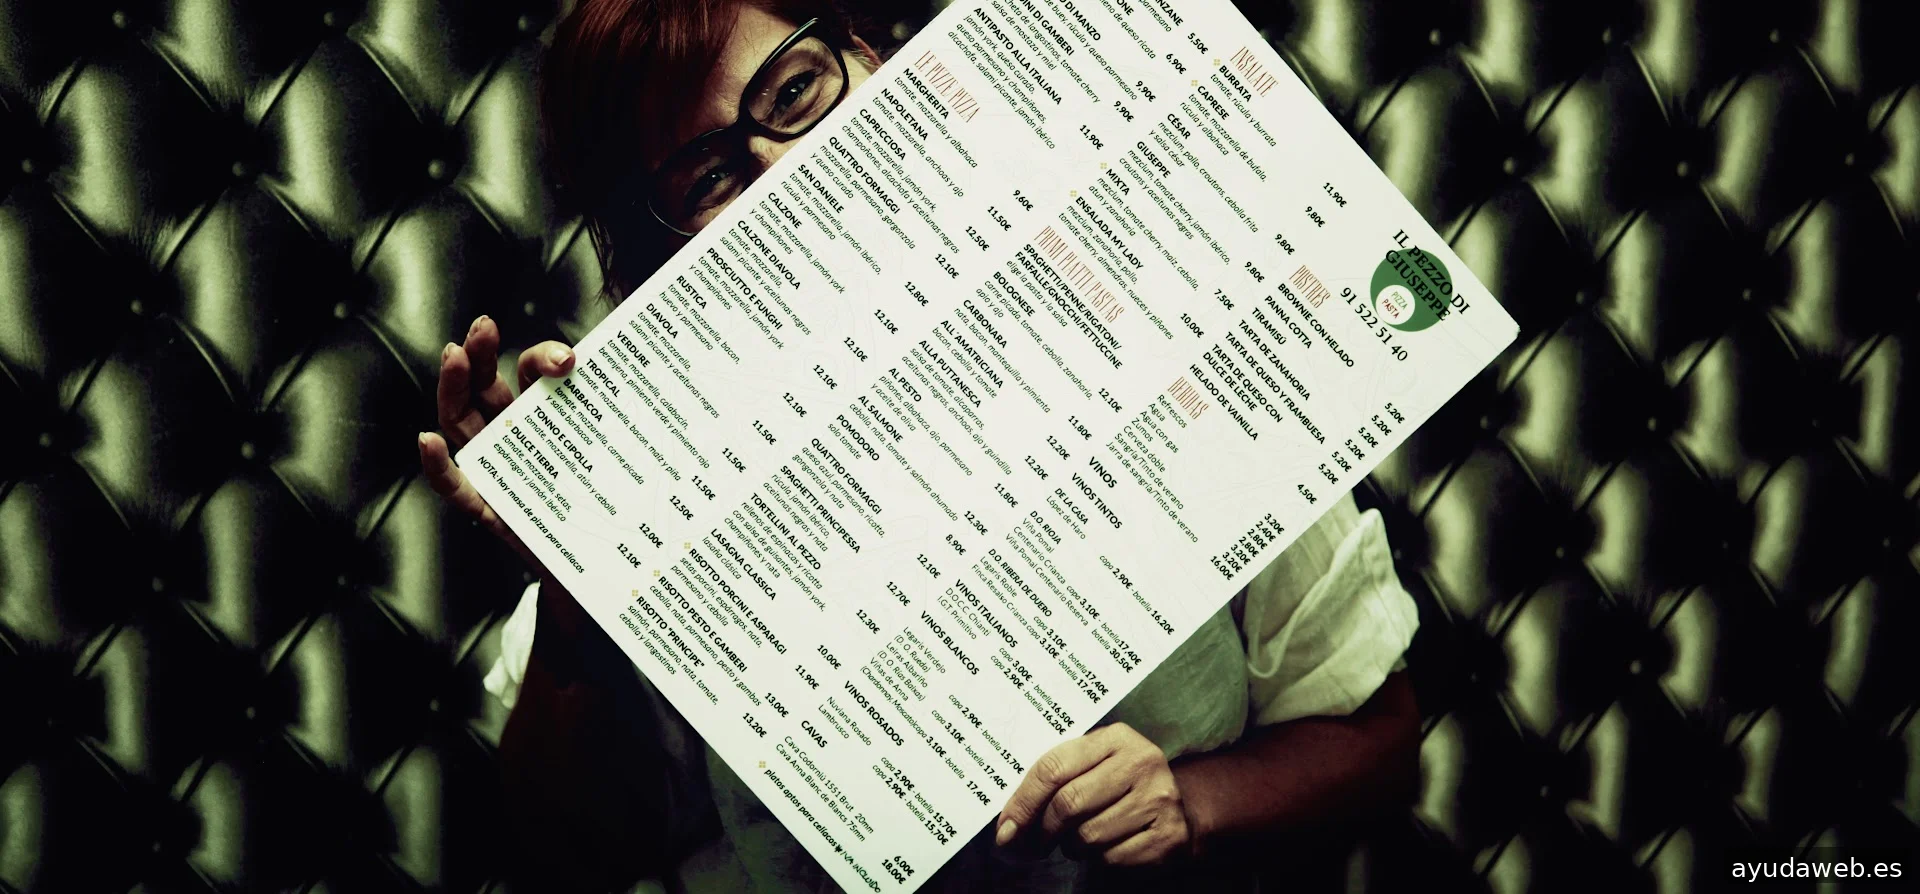 ANZANE
parmesano
5,50€
ONE
leno de queso ricota
6,90€
O DI MANZO
de buey, rúcula y queso parmesano
9,90€
INI DI GAMBERI
cheta de langostinos, tomate cherry
salsa de mostaza y miel
9,90€
ANTIPASTO ALLA ITALIANA
jamón york, queso curado,
queso parmesano y champiñones,
alcachofa, salami picante, jamón ibérico
11,90€
LE PIZZE/PIZZA
MARGHERITA
tomate, mozzarella y albahaca
9,60€
NAPOLETANA
tomate, mozzarella, anchoas y ajo
11,50€
CAPRICCIOSA
tomate, mozzarella, jamón york,
champiñones, alcachofa y aceitunas negras
12,50€
QUATTRO FORMAGGI
mozzarella, parmesano, gorgonzola
y queso curado
12,10€
SAN DANIELE
tomate, mozzarella, jamón ibérico,
rúcula y parmesano
12,80€
CALZONE
tomate, mozzarella, jamón york
y champiñones
12,10€
CALZONE DIAVOLA
tomate, mozzarella,
salami picante y aceitunas negras
12,10€
PROSCIUTTO E FUNGHI
tomate, mozzarella, jamón york
y champiñones
12,10€
RUSTICA
tomate, mozzarella, bacon,
huevo y parmesano
12,10€
DIAVOLA
tomate, mozzarella,
salami picante y aceitunas negras
11,50€
VERDURE
tomate, mozzarella, calabacín,
berenjena, pimiento verde y pimiento rojo
11,50€
TROPICAL
tomate, mozzarella, bacon, maíz y piña
11,50€
BARBACOA
tomate, mozzarella, carne picada
y salsa barbacoa
12,50€
TONNO E CIPOLLA
tomate, mozzarella, atún y cebolla
12,00€
DULCE TIERRA
tomate, mozzarella, setas,
espárragos y jamón ibérico
12,10€
NOTA: hay masa de pizza para celíacos
INSALATE
BURRATA
tomate, rúcula y burrata
11,90€
CAPRESE
tomate, mozzarella de búfala,
rúcula y albahaca
9,80€
CÉSAR
mezclum, pollo, croutons, cebolla frita
y salsa césar
9,80€
GIUSEPPE
mezclum, tomate cherry, jamón ibérico,
croutons y aceitunas negras
9,80€
MIXTA
mezclum, tomate cherry, maíz, cebolla,
atún y zanahoria
7,50€
ENSALADA MY LADY
mezclum, zanahoria, pollo,
tomate cherry, almendras, nueces y piñones
10,00€
PRIMI PIATTI/PASTAS
SPAGHETTI/PENNE/RIGATONI/
FARFALLE/GNOCCHI/FETTUCCINE
elige la pasta y la salsa
BOLOGNESE
carne picada, tomate, cebolla, zanahoria,
apio y ajo
12,10€
CARBONARA
nata, bacon, mantequilla y pimienta
11,80€
ALL'AMATRICIANA
bacon, cebolla y tomate
12,20€
ALLA PUTTANESCA
salsa de tomate, alcaparras,
aceitunas negras, anchoas, ajo y guindilla
12,20€
AL PESTO
piñones, albahaca, ajo, parmesano
y aceite de oliva
11,80€
AL SALMONE
cebolla, nata, tomate y salmón ahumado
12,30€
POMODORO
solo tomate
8,90€
QUATTRO FORMAGGI
queso azul, parmesano, ricotta,
gorgonzola y nata
12,10€
SPAGHETTI PRINCIPESSA
rúcula, jamón ibérico,
aceitunas negras y nata
12,70€
TORTELLINI AL PEZZO
rellenos de espinacas y ricotta
con salsa de guisantes, jamón york,
champiñones y nata
12,30€
LASAGNA CLASSICA
lasaña clásica
10,00€
RISOTTO PORCINI E ASPARAGI
setas porcini, espárragos, nata,
parmesano y cebolla
11,90€
RISOTTO PESTO E GAMBERI
cebolla, nata, parmesano, pesto y gambas
13,00€
RISOTTO "PRINCIPE"
salmón, parmesano, nata, tomate,
cebolla y langostinos
13,20€
IL PEZZO DI
GIUSEPPE
PIZZA
PASTA
91 522 51 40
POSTRES
BROWNIE CON HELADO
5,20€
PANNA COTTA
5,20€
TIRAMISÚ
5,20€
TARTA DE ZANAHORIA
5,20€
TARTA DE QUESO Y FRAMBUESA
5,20€
TARTA DE QUESO CON
DULCE DE LECHE
HELADO DE VAINILLA
4,50€
BEBIDAS
Refrescos
3,20€
Agua
2,40€
Agua con gas
2,80€
Zumos
2,80€
Cerveza doble
3,20€
Sangría/Tinto de verano
3,20€
Jarra de sangría/Tinto de verano
16,00€
VINOS
VINOS TINTOS
DE LA CASA
López de Haro
copa 2,90€ - botella 16,20€
D.O. RIOJA
Viña Pomal
Centenario Crianza copa 3,10€ - botella 17,40€
Viña Pomal Centenario Reserva botella 30,50€
D.O. RIBERA DE DUERO
Legaris Roble copa 3,10€ - botella 17,40€
Finca Resalso Crianza copa 3,10€ - botella 17,40€
VINOS ITALIANOS
D.O.C.C. Chianti copa 3,00€ - botella 16,50€
I.G.T. Primitivo copa 2,90€ - botella 16,20€
VINOS BLANCOS
Legaris Verdejo
(D. O. Rueda) copa 2,90€ - botella 15,70€
Leiras Albariño
(D. O. Rías Baixas) copa 3,10€ - botella 17,40€
Viñas de Anna
(Chardonnay, Moscato) copa 3,10€ - botella 17,40€
VINOS ROSADOS
Nuviana Rosado copa 2,90€ - botella 15,70€
Lambrusco copa 2,90€ - botella 15,70€
CAVAS
Cava Codorniu 1551 Brut 20mm 6,00€
Cava Anna Blanc de Blancs 75mm 18,00€
platos aptos para celíacos * IVA INCLUIDO
ayudaweb.es